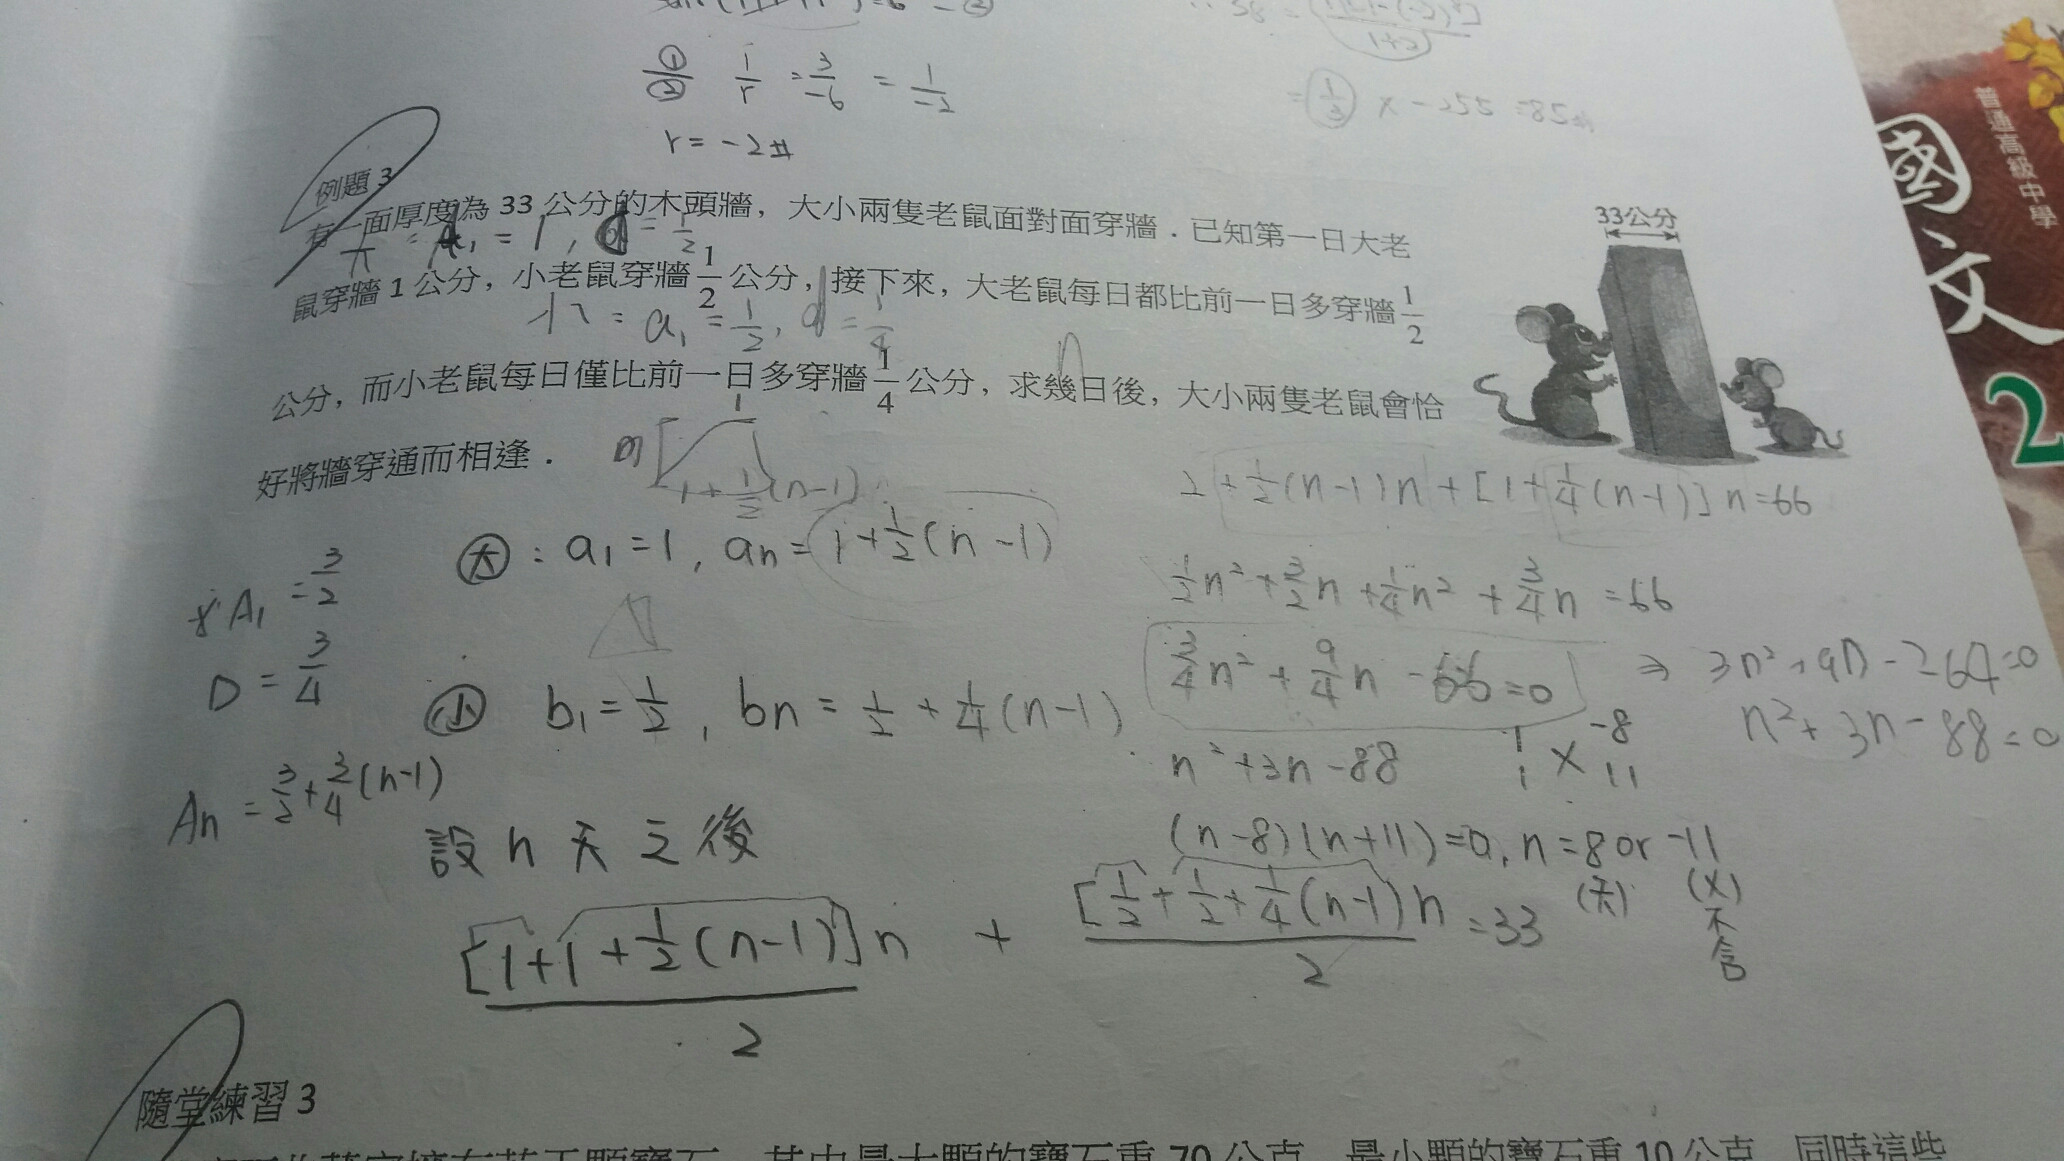 ①/② 1/r = 3/-6 = 1/-2
r = -2 #
= 1/3 x -255 = 85 #
例題 3
有一面厚度為 33 公分的木頭牆，大小兩隻老鼠面對面穿牆．已知第一日大老
大 = a₁ = 1, d = 1/2
鼠穿牆 1 公分，小老鼠穿牆 1/2 公分，接下來，大老鼠每日都比前一日多穿牆 1/2
小 : a₁ = 1/2, d = 1/4
n
公分，而小老鼠每日僅比前一日多穿牆 1/4 公分，求幾日後，大小兩隻老鼠會恰
好將牆穿通而相逢．
33公分
1
1 + 1/2 (n-1)
大 : a₁ = 1, an = 1 + 1/2 (n-1)
A₁ = 3/2
D = 3/4
小 b₁ = 1/2, bn = 1/2 + 1/4 (n-1)
An = 3/2 + 3/4 (n-1)
設 n 天之後
[1+1+1/2(n-1)]n / 2 + [1/2+1/2+1/4(n-1)n / 2 = 33
2 + 1/2 (n-1)n + [1 + 1/4 (n-1)] n = 66
1/2 n² + 3/2 n + 1/4 n² + 3/4 n = 66
3/4 n² + 9/4 n - 66 = 0 ⇒ 3n² + 9n - 264 = 0
n² + 3n - 88 = 0
n² + 3n - 88
1 -8
1 × 11
(n-8)(n+11) = 0, n = 8 or -11
(天) (X)
不
合
隨堂練習 3
普通高級中學
國文
2